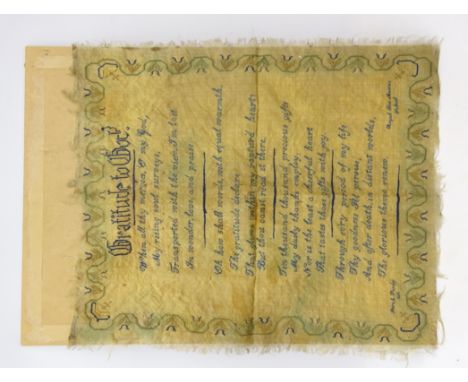 Gratitude to God.
When all thy mercies, O my God,
My rising soul surveys,
Transported with the view I'm lost
In wonder, love, and praise.
Oh how shall words, with equal warmth,
The gratitude declare,
That glows within my ravished heart;
But thou canst read it there.
Ten thousand thousand precious gifts
My daily thanks employ,
Nor is the least a cheerful heart
That tastes those gifts with joy.
Through every period of my life
Thy goodness I'll pursue,
And after death, in distant worlds,
The glorious theme renew.